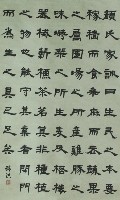 顏氏家訓曰生民之本要當
稼穡而食桑麻而衣蔬果
之蓄園場之所產雞豚之
味塒圈之所生爰及棟樓
器械薪樵茶茗莫非種植
之物也能守其業者閉門
而為生之具已足矣